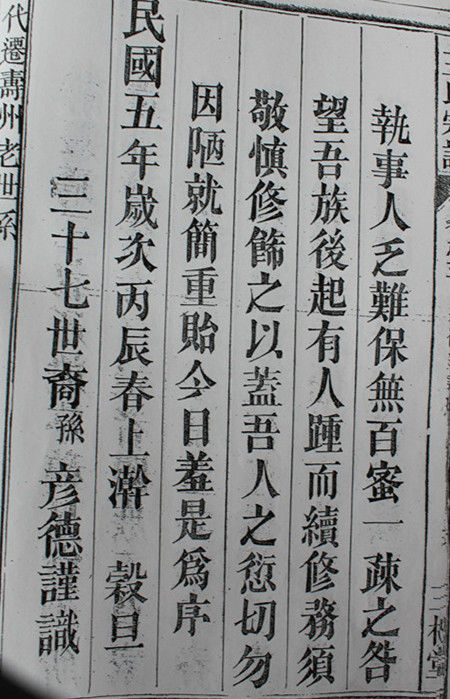 王氏宗譜
三槐堂
執事人乏難保無百蜜一疎之咎
望吾族後起有人踵而續修務須
敬慎修飾之以蓋吾人之愆切勿
因陋就簡重貽今日羞是爲序
民國五年歲次丙辰春上澣 穀旦
三十七世裔孫 彦德謹識
代遷壽州老世系